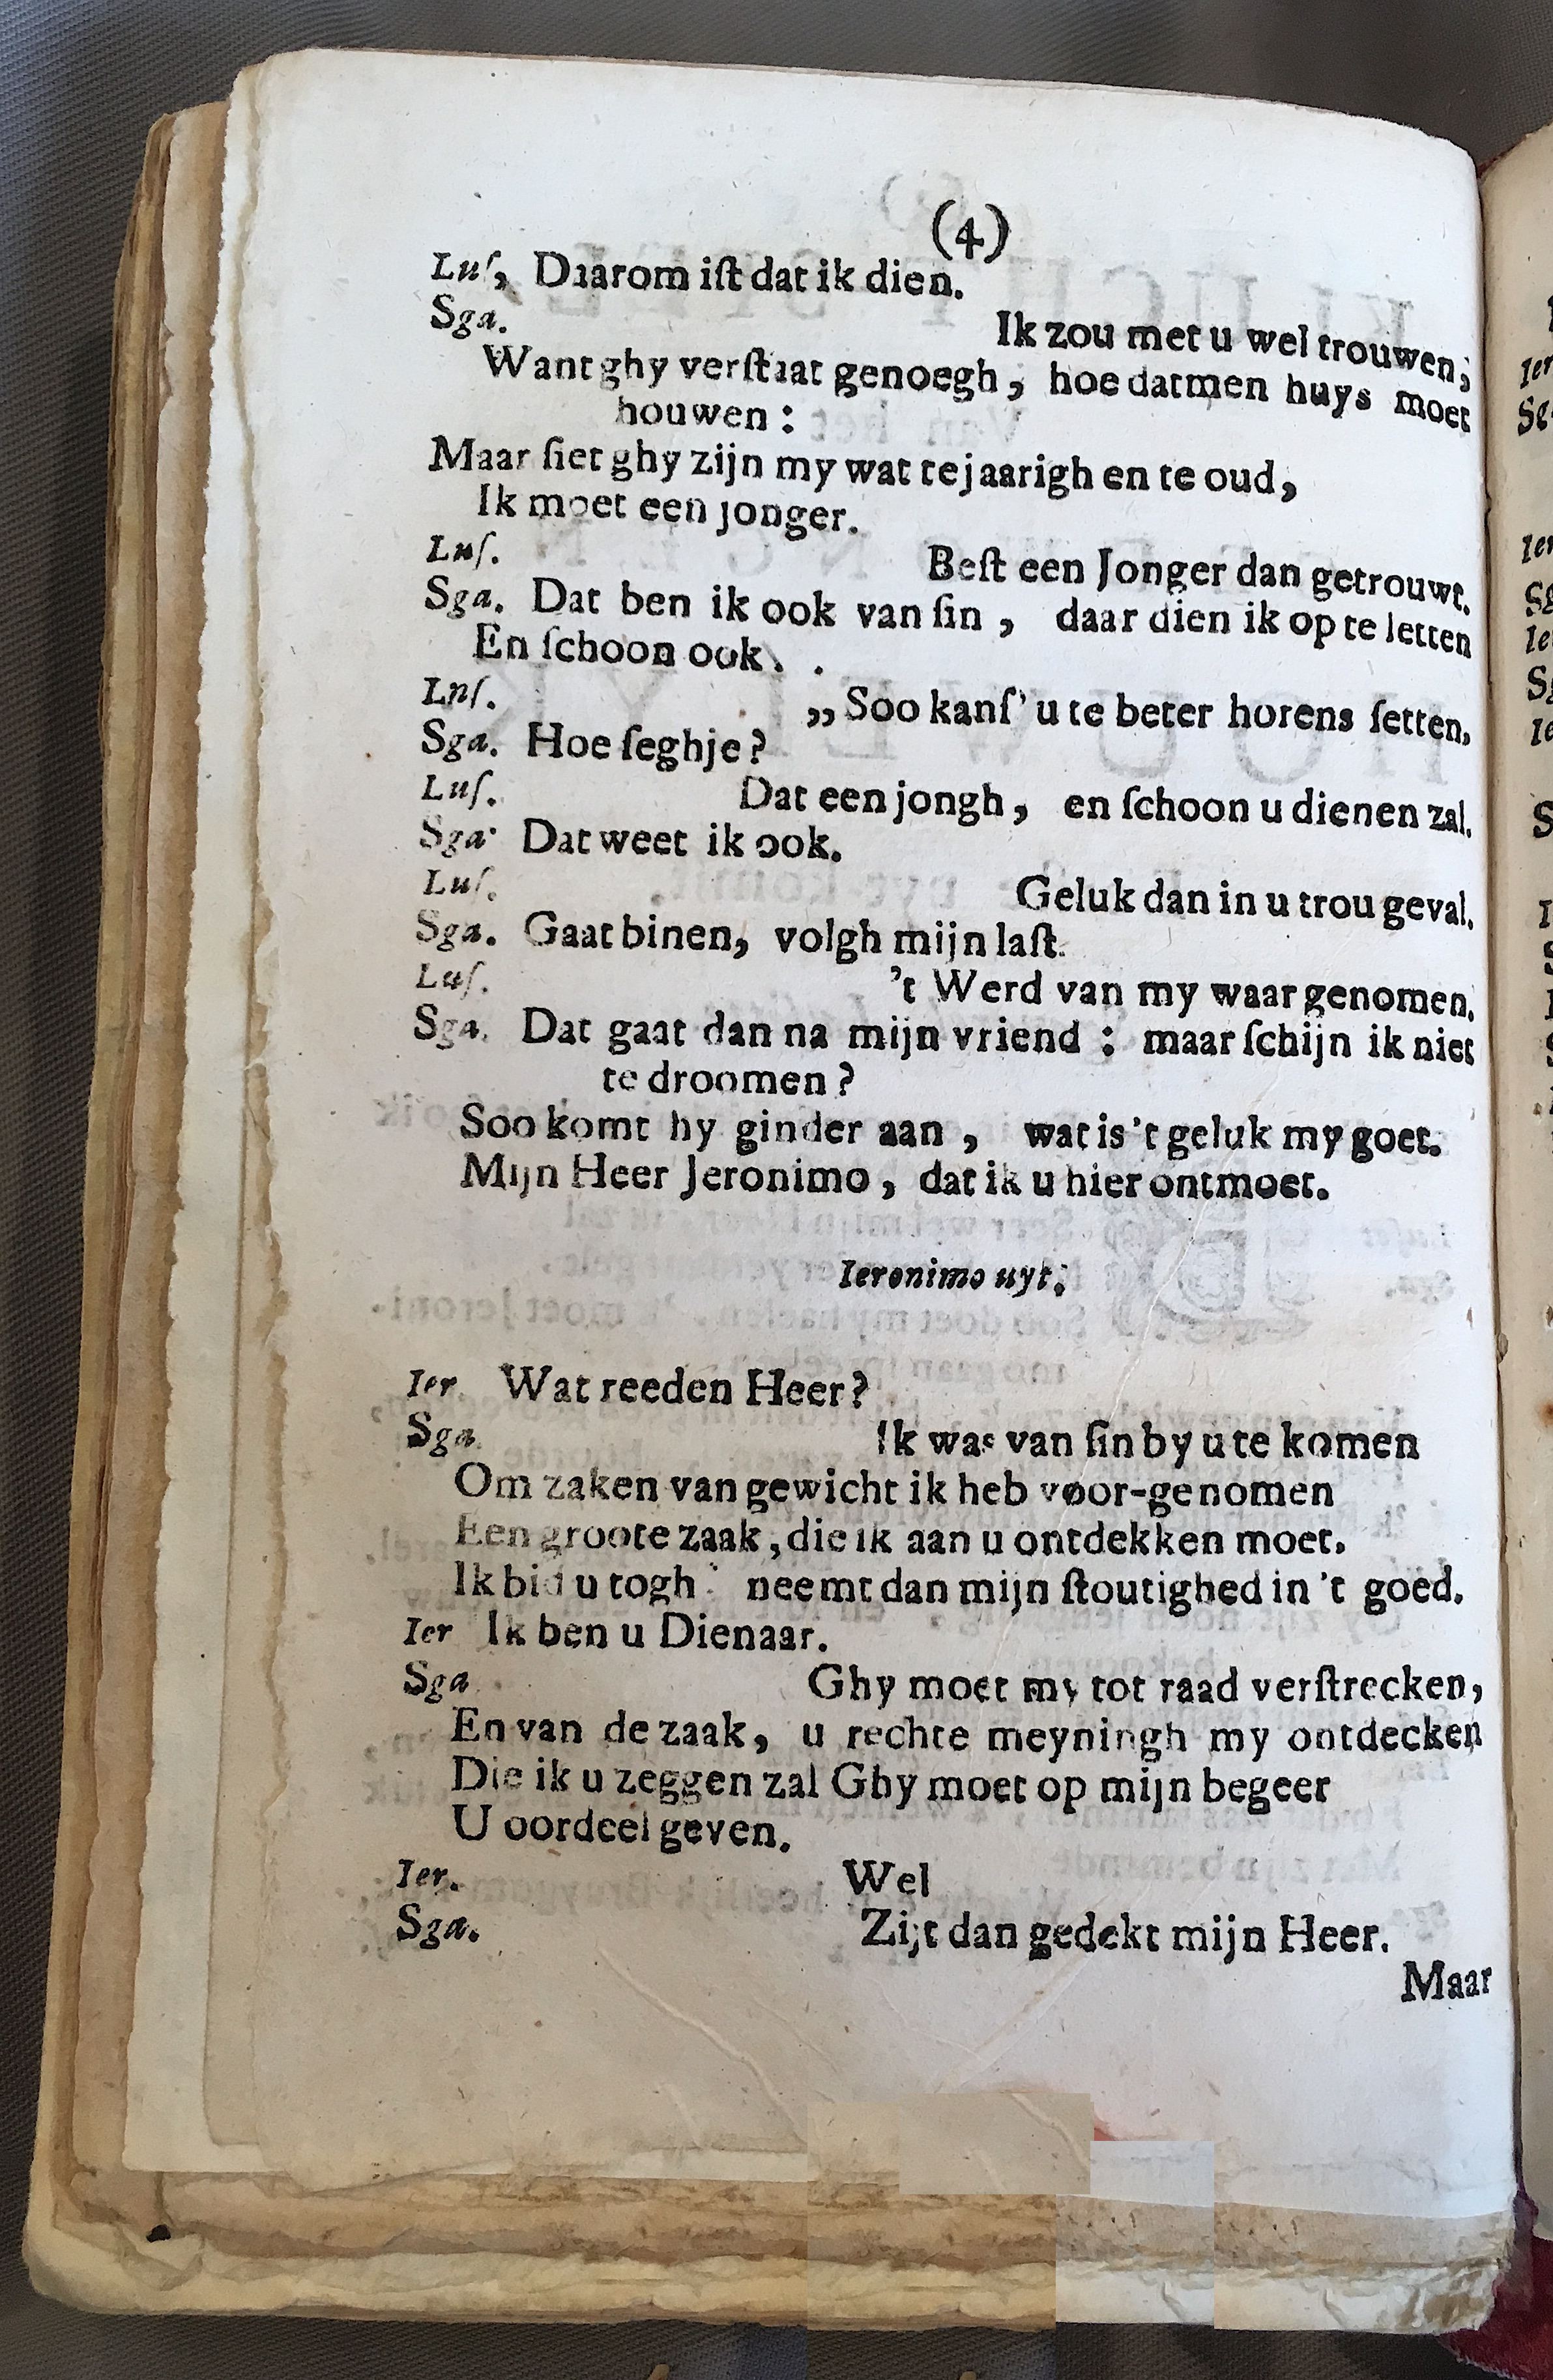 (4)
Luſ, Daarom iſt dat ik dien.
Sga. Ik zou met u wel trouwen;
Want ghy verſtaat genoegh, hoe datmen huys moet
houwen:
Maar ſiet ghy zijn my wat te jaarigh en te oud,
Ik moet een jonger.
Luſ. Beſt een Jonger dan getrouwt.
Sga. Dat ben ik ook van ſin, daar dien ik op te letten
En ſchoon ook.
Lnſ. „Soo kanſ' u te beter horens ſetten.
Sga. Hoe ſeghje?
Luſ. Dat een jongh, en ſchoon u dienen zal.
Sga. Dat weet ik ook.
Luſ. Geluk dan in u trou geval.
Sga. Gaat binen, volgh mijn laſt.
Luſ. 't Werd van my waar genomen.
Sga. Dat gaat dan na mijn vriend: maar ſchijn ik niet
te droomen?
Soo komt hy ginder aan, wat is 't geluk my goet.
Mijn Heer Jeronimo, dat ik u hier ontmoet.
Ieronimo uyt;
Ier. Wat reeden Heer?
Sga. Ik was van ſin by u te komen
Om zaken van gewicht ik heb voor-genomen
Een groote zaak, die ik aan u ontdekken moet.
Ik bid u togh: neemt dan mijn ſtoutighed in 't goed.
Ier Ik ben u Dienaar.
Sga Ghy moet my tot raad verſtrecken,
En van de zaak, u rechte meyningh my ontdecken
Die ik u zeggen zal Ghy moet op mijn begeer
U oordeel geven.
Ier. Wel
Sga. Zijt dan gedekt mijn Heer.
Maar